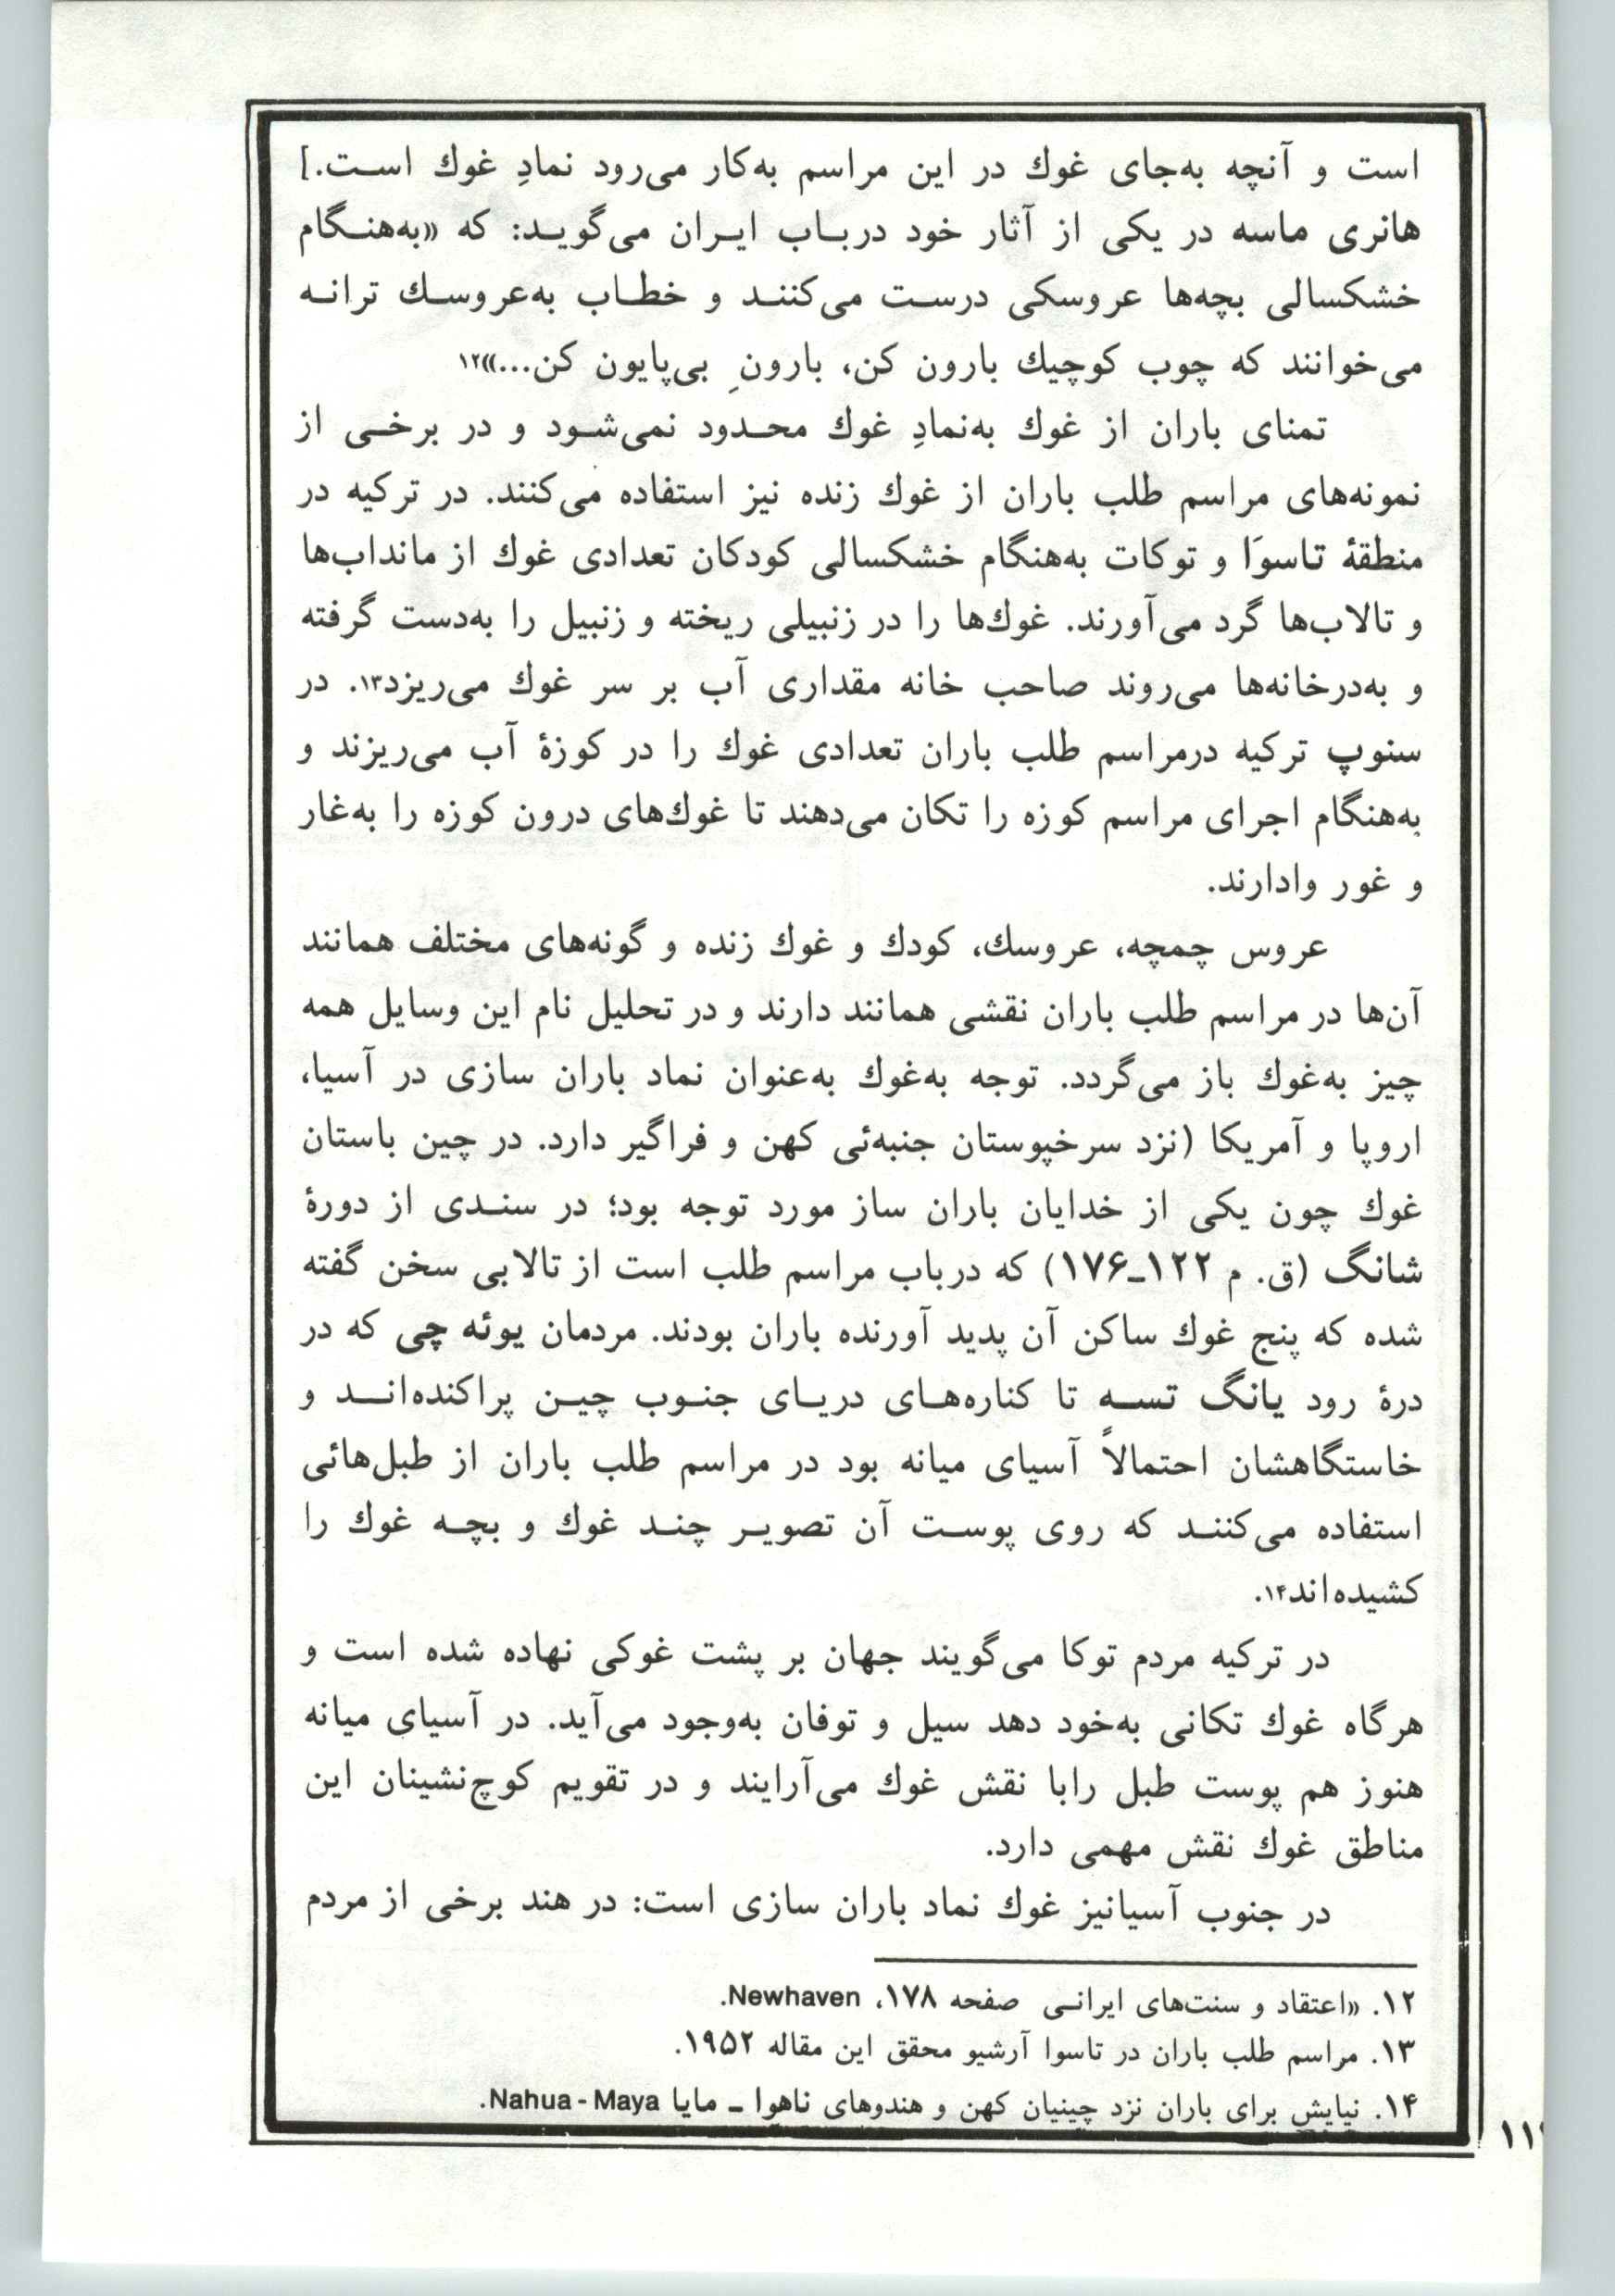 است و آنچه به‌جای غوك در این مراسم به‌کار می‌رود نمادِ غوك است.]
هانری ماسه در یکی از آثار خود درباب ایران می‌گوید: که «به‌هنگام
خشکسالی بچه‌ها عروسکی درست می‌کنند و خطاب به‌عروسك ترانه
می‌خوانند که چوب کوچیك بارون کن، بارونِ بی‌پایون کن...»۱۲
تمنای باران از غوك به‌نمادِ غوك محدود نمی‌شود و در برخی از
نمونه‌های مراسم طلب باران از غوك زنده نیز استفاده می‌کنند. در ترکیه در
منطقهٔ تاسوَا و توکات به‌هنگام خشکسالی کودکان تعدادی غوك از مانداب‌ها
و تالاب‌ها گرد می‌آورند. غوك‌ها را در زنبیلی ریخته و زنبیل را به‌دست گرفته
و به‌درخانه‌ها می‌روند صاحب خانه مقداری آب بر سر غوك می‌ریزد۱۳. در
سنوپ ترکیه درمراسم طلب باران تعدادی غوك را در کوزهٔ آب می‌ریزند و
به‌هنگام اجرای مراسم کوزه را تکان می‌دهند تا غوك‌های درون کوزه را به‌غار
و غور وادارند.
عروس چمچه، عروسك، کودك و غوك زنده و گونه‌های مختلف همانند
آن‌ها در مراسم طلب باران نقشی همانند دارند و در تحلیل نام این وسایل همه
چیز به‌غوك باز می‌گردد. توجه به‌غوك به‌عنوان نماد باران سازی در آسیا،
اروپا و آمریکا (نزد سرخپوستان جنبه‌ئی کهن و فراگیر دارد. در چین باستان
غوك چون یکی از خدایان باران ساز مورد توجه بود؛ در سندی از دورهٔ
شانگ (ق. م ۱۲۲ـ۱۷۶) که درباب مراسم طلب است از تالابی سخن گفته
شده که پنج غوك ساکن آن پدید آورنده باران بودند. مردمان یوئه چی که در
درهٔ رود یانگ تسه تا کناره‌های دریای جنوب چین پراکنده‌اند و
خاستگاهشان احتمالاً آسیای میانه بود در مراسم طلب باران از طبل‌هائی
استفاده می‌کنند که روی پوست آن تصویر چند غوك و بچه غوك را
کشیده‌اند۱۴.
در ترکیه مردم توکا می‌گویند جهان بر پشت غوکی نهاده شده است و
هرگاه غوك تکانی به‌خود دهد سیل و توفان به‌وجود می‌آید. در آسیای میانه
هنوز هم پوست طبل رابا نقش غوك می‌آرایند و در تقویم کوچ‌نشینان این
مناطق غوك نقش مهمی دارد.
در جنوب آسیانیز غوك نماد باران سازی است: در هند برخی از مردم
۱۲. «اعتقاد و سنت‌های ایرانی صفحه ۱۷۸، Newhaven.
۱۳. مراسم طلب باران در تاسوا آرشیو محقق این مقاله ۱۹۵۲.
۱۴. نیایش برای باران نزد چینیان کهن و هندوهای ناهوا ـ مایا Nahua - Maya.